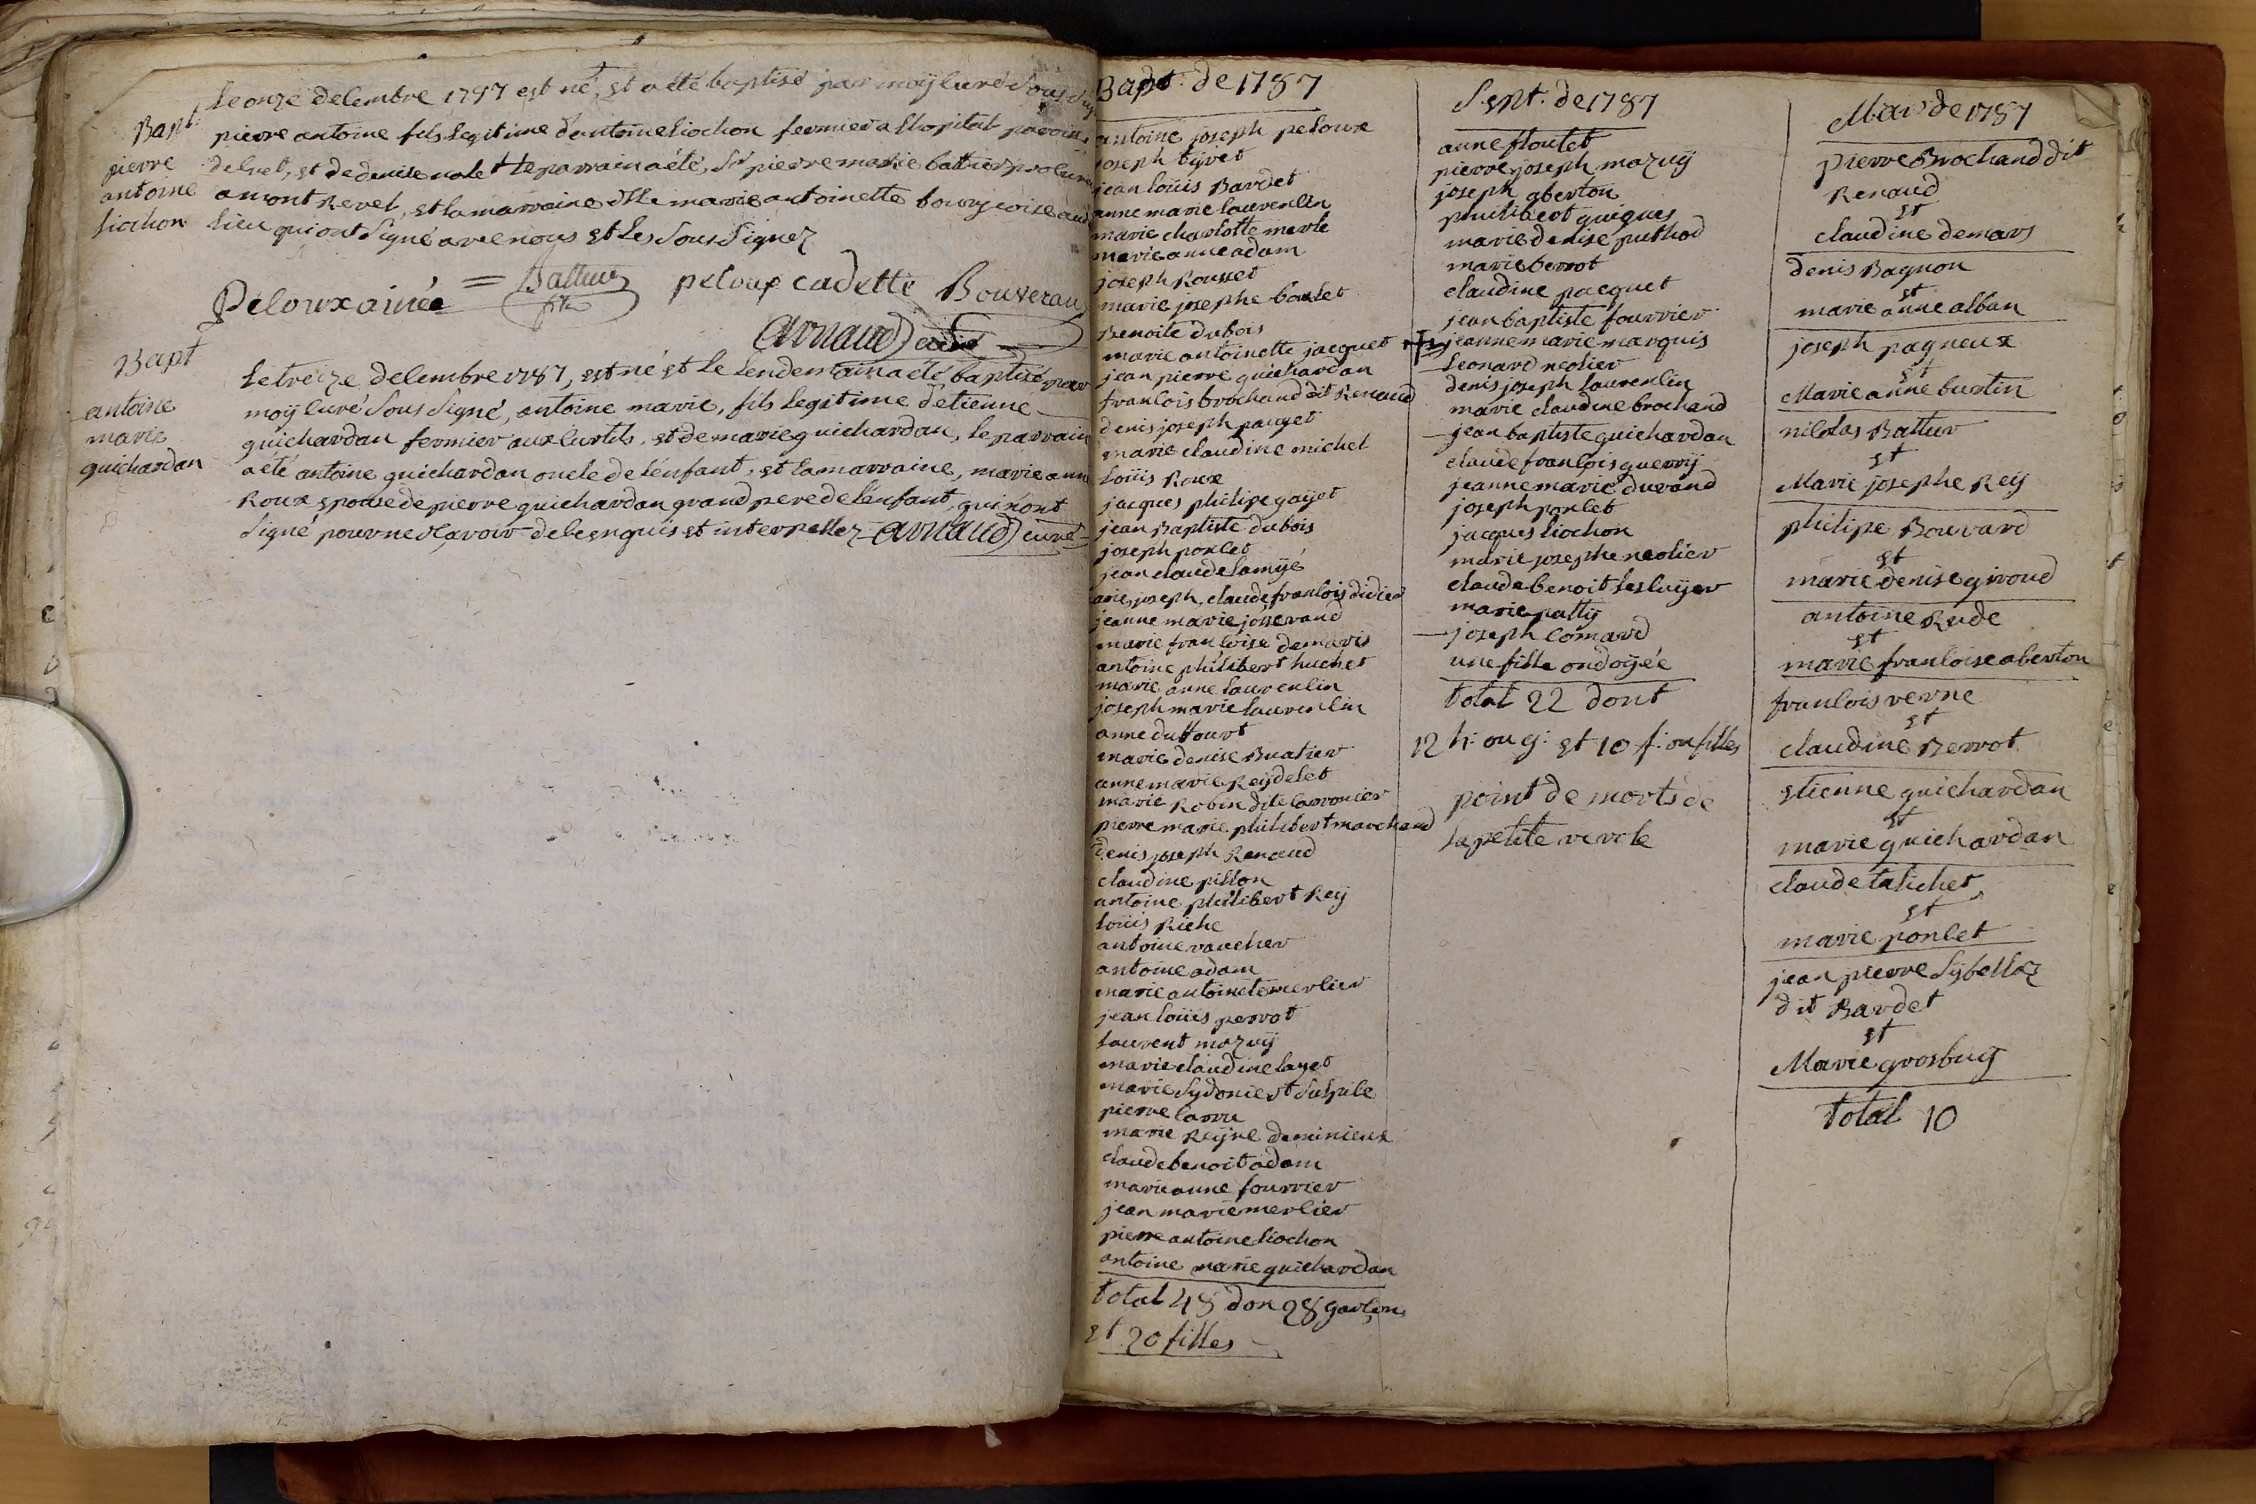 Bapt.
pierre
antoine
liochon
Le onze decembre 1787 est né, et a été baptisé par moÿ curé sous sig
pierre antoine fils legitime d'antoine liochon fermier a l'hopital paroisse
de les, et de denise nolet le parrain a été, Sr pierre marie battier
amont Revel, et la marraine dlle marie antoinette bourgeoise aud
lieu qui ont signé avec nous et les sous signez
Pelouxainée = Battier fils peloux cadette Bouveran
Arnaud curé
Bapt
antoine
marie
guichardan
Le treize decembre 1787, est né et le lendemain a été baptisé par
moÿ curé sous signé, antoine marie, fils legitime d'etienne
guichardan fermier aux curtils, et de marie guichardan, le parrain
a été antoine guichardan oncle de l'enfant, et la marraine, marie anne
Roux epouse de pierre guichardan grand pere de l'enfant, qui n'ont
signé pour ne sçavoir de ce enquis et interpellez Arnaud curé
Bapt. de 1787
antoine joseph peloux
joseph tÿvet
jean loüis Bardet
anne marie laurencin
marie charlotte merle
marie anne adam
joseph Rousset
marie josephe boulet
Benoite dubois
marie antoinette jacquet
jean pierre guichardan
francois brochand dit Renaud
denis joseph pauget
marie claudine michel
loüis Roux
jacques philipe gaÿet
jean Baptiste dubois
joseph poncet
jean claude lamÿé
joseph, claude francois didier
jeanne marie josserand
marie francoise demaris
antoine philibert huchet
marie anne laurencin
joseph marie laurencin
anne duttourt
marie denise Buatier
anne marie Reÿdelet
marie Robin dite larronier
pierre marie philibert marchand
denis joseph Renaud
claudine pillon
antoine philibert Reÿ
loüis Riche
antoine vaucher
antoine adam
marie antoinete mercier
jean loüis perrot
laurent mazuÿ
marie claudine layet
marie sydonie et sulpile
pierre larru
marie Reÿne deminieux
claude benoit adam
marie anne fourrier
jean marie mercier
pierre antoine liochon
antoine marie guichardan
total 48 don 28 garcons
et 20 filles
S.ept. de 1787
anne floutet
pierre joseph mazuÿ
joseph aberton
philibert guigues
marie denise puthod
marie berrot
claudine pacquet
jean baptiste fourrier
jeanne marie marquis
Leonard neolier
denis joseph laurencin
marie claudine brochand
jean baptiste guichardan
claude francois guerrÿ
jeanne marie durand
joseph poncet
jacques liochon
marie josephe neolier
claude benoit lescuÿer
marie pattÿ
joseph comard
une fille ondoÿée
total 22 dont
12 h: ou g: et 10 f: ou filles
point de morts de
la petite verole
Mar. de 1787
pierre Brochand dit
Renaud
et
claudine demars
denis Bagnon
et
marie anne alban
joseph pagneux
et
Marie anne burtin
nicolas Battur
et
Marie josephe Reÿ
philipe Bouvard
et
marie denise giroud
antoine Rude
et
marie francoise aberton
francois verne
et
claudine Berrot
etienne guichardan
et
marie guichardan
claude talichet
et
marie poncet
jean pierre Sÿbellaz
dit Bardet
et
Marie grosbuis
total 10